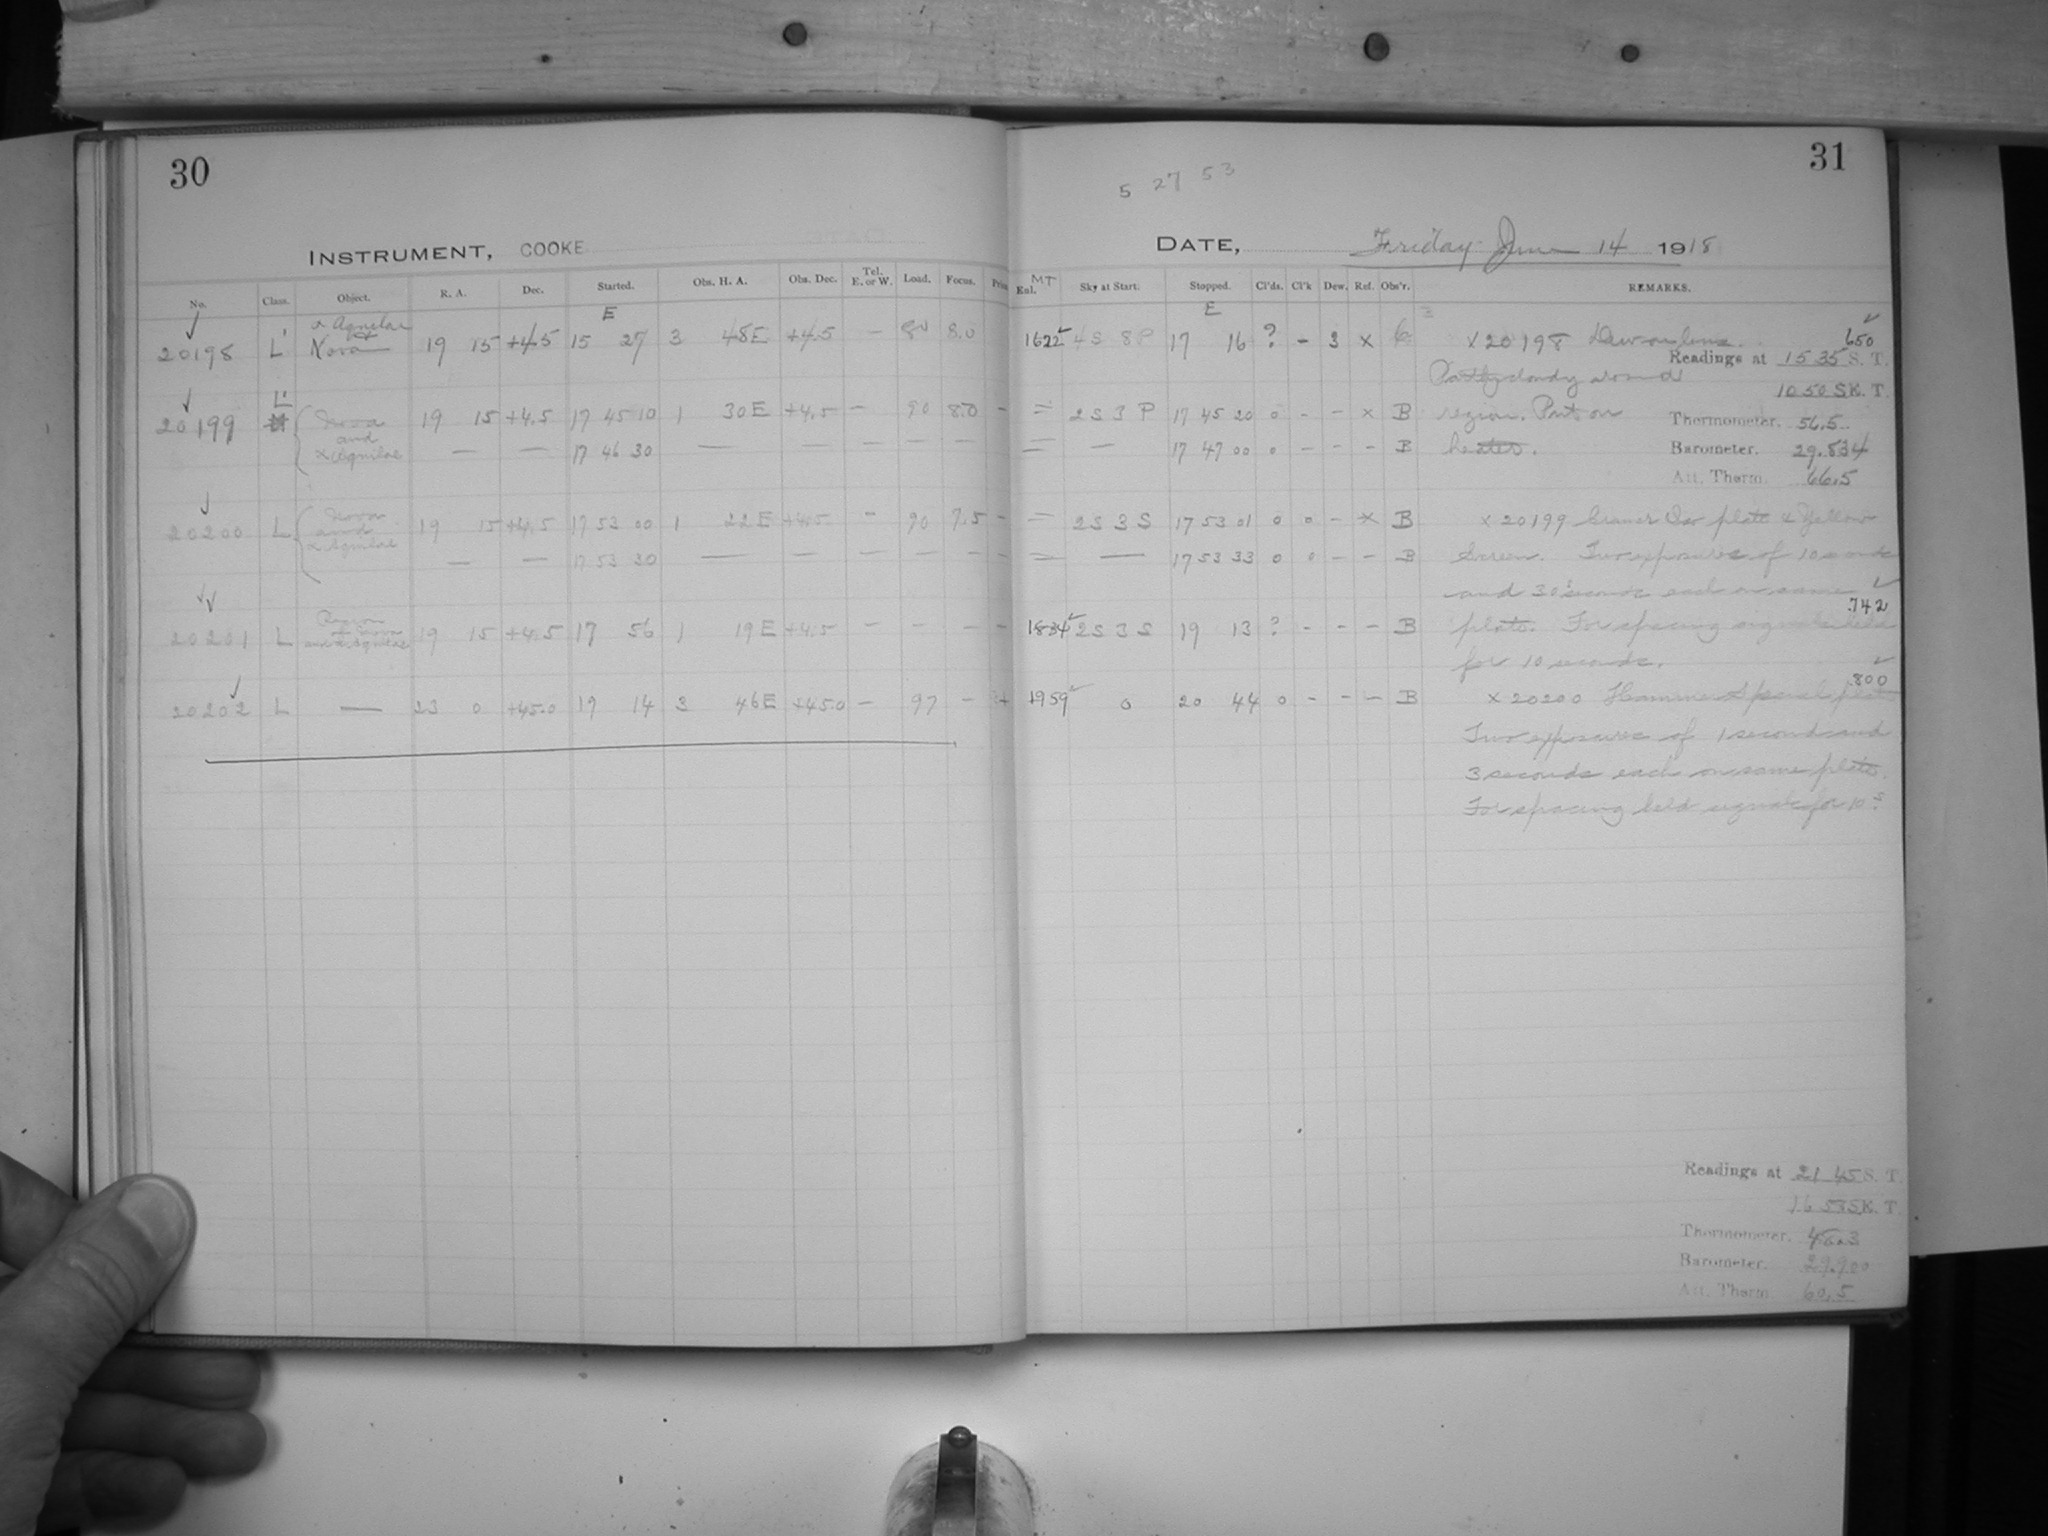 30
INSTRUMENT, COOKE
No. Class. Object. R. A. Dec. Started. Obs. H. A. Obs. Dec. Tel. E. or W. Load. Focus.
E
20198 L' α Aquilae + Nova 19 15 +4.5 15 27 3 48E +4.5 — 80 8.0
20199 L' Nova and α Aquilae 19 15 +4.5 17 45 10 1 30E +4.5 — 90 8.0 —
— — 17 46 30 — — — — — —
20200 L Nova and α Aquilae 19 15 +4.5 17 53 00 1 22E +4.5 — 90 7.5 —
— — 17 53 30 — — — — — —
20201 L Region of Nova and α Aquilae 19 15 +4.5 17 56 1 19E +4.5 — — — —
20202 L — 23 0 +45.0 19 14 3 46E +45.0 — 97 —
31
5 27 53
DATE, Friday June 14 1918
MT
Exl. Sky at Start. Stopped. Cl'ds. Cl'k Dew. Ref. Obs'r. REMARKS.
E
1622 4S 8P 17 16 ? - 3 x
= 2S 3P 17 45 20 0 - - x B
= — 17 47 00 0 - - - B
= 2S 3S 17 53 01 0 0 - x B
= — 17 53 33 0 0 - - B
1834 2S 3S 19 13 ? - - - B
1959 0 20 44 0 - - - B
x 20198 Dew on lens.
650
Readings at 15 35 S. T.
Partly cloudy around
10 50 SK. T.
region. Put on
Thermometer. 56.5
heater.
Barometer. 29.834
Att. Therm. 66.5
x 20199 Cramer Iso plate & Yellow
Screen. Two exposures of 10 seconds
and 30 seconds each on same
742
plate. For spacing signals held
for 10 seconds.
800
x 20200 Hammer Special plate
Two exposures of 1 second and
3 seconds each on same plate.
For spacing held signals for 10 s.
Readings at 21 45 S. T.
16 58 SK. T.
Thermometer.
Barometer. 29.900
Att. Therm. 60.5